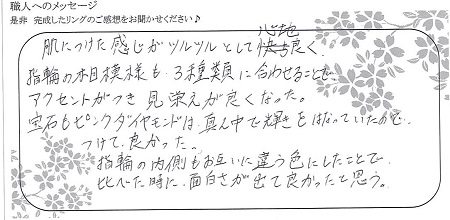 職人へのメッセージ
是非 完成したリングのご感想をお聞かせください♪
肌につけた感じがツルツルとして心地良く、
指輪の木目模様も、3種類に合わせることで、
アクセントがつき 見栄えが良くなった。
宝石もピンクダイヤモンドは、真ん中で輝きをはなっていたので、
つけて、良かった。
指輪の内側もお互いに違う色にしたことで、
比べた時に、面白さが出て良かったと思う。